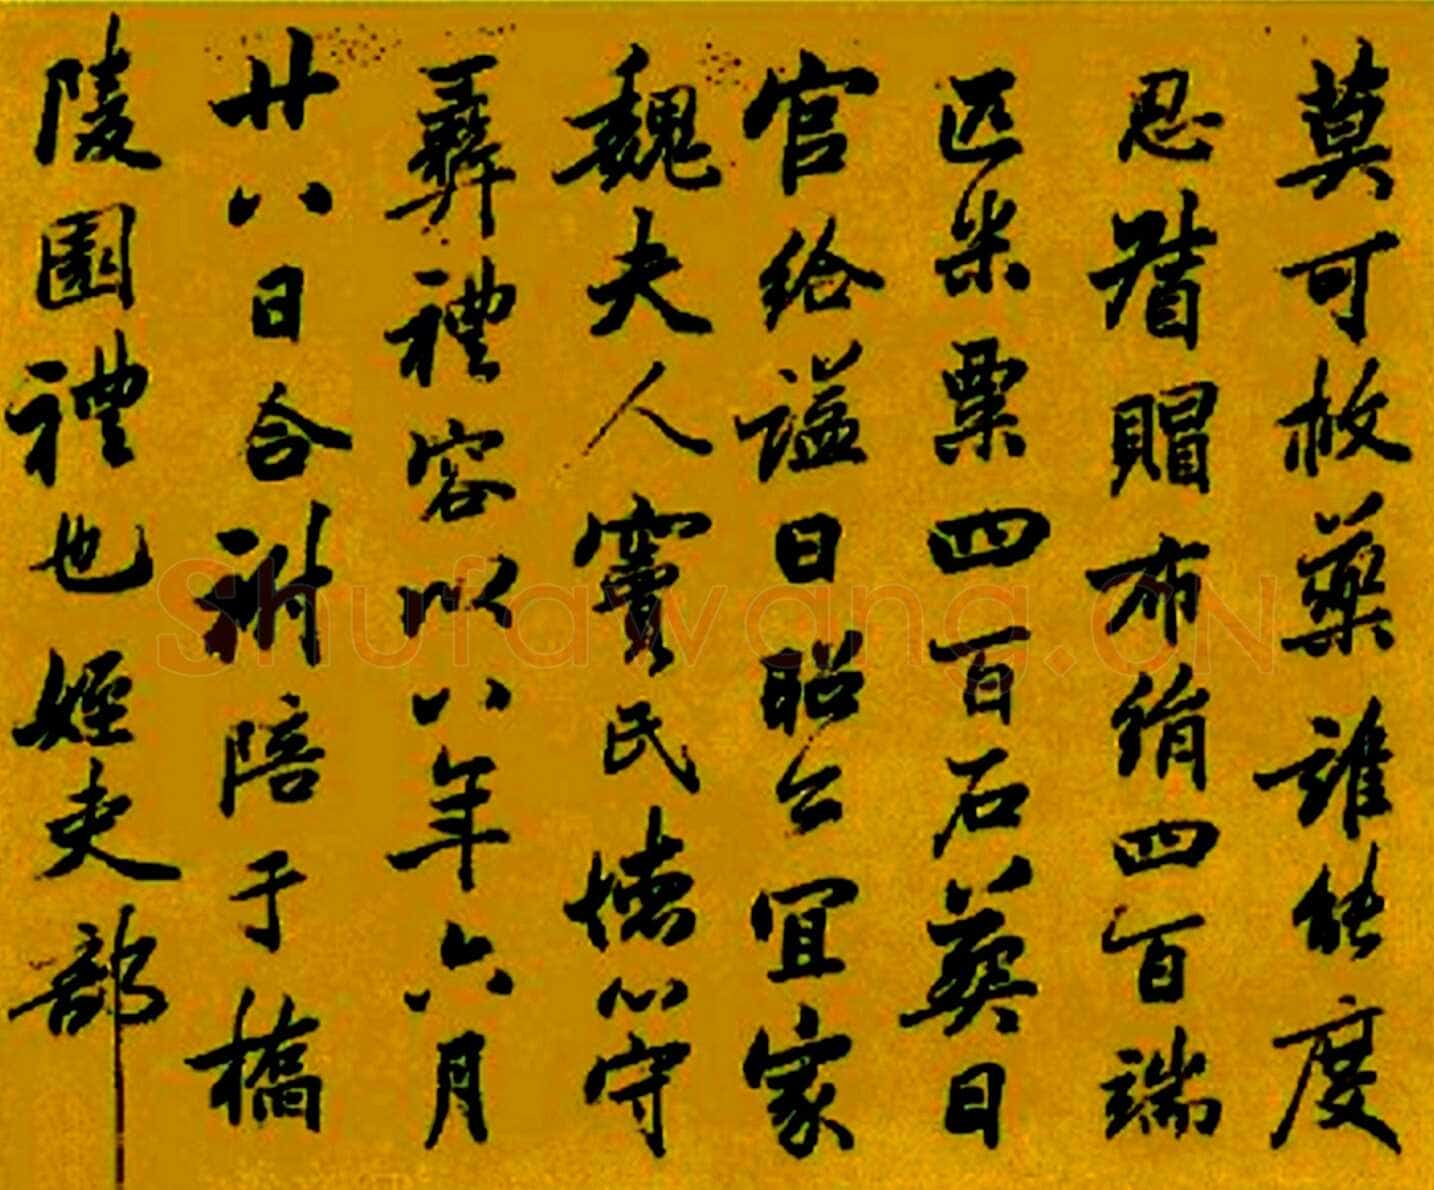 莫可救藥誰能度
恐猎賵布绢四百端
匹米粟四百石葬日
官給謚曰昭公宜家
魏夫人竇氏德心守
彝禮容以八年六月
廿八日合祔陪于橋
陵園禮也姪吏部
Shufawang.CN